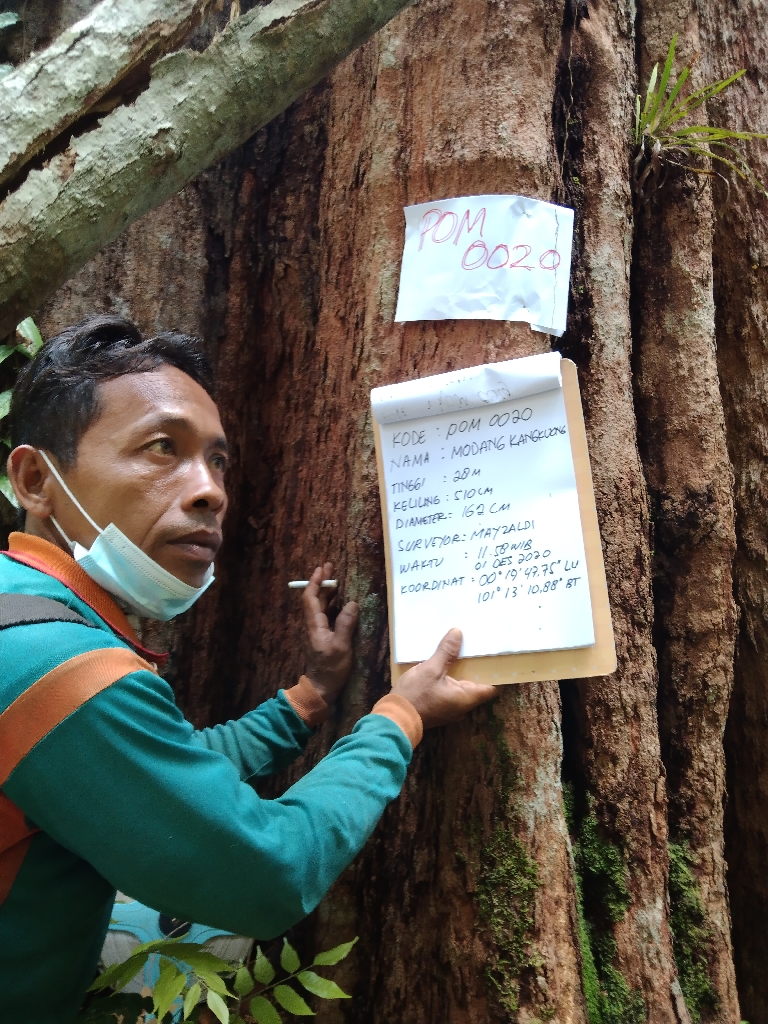 POM
0020
KODE : POM 0020
NAMA : MODANG KANGKUONG
TINGGI : 28 M
KELILING : 510 CM
DIAMETER = 162 CM
SURVEYOR = MAYZALDI
WAKTU : 11.58 WIB
01 DES 2020
KOORDINAT : 00° 19' 47.75" LU
101° 13' 10.88" BT